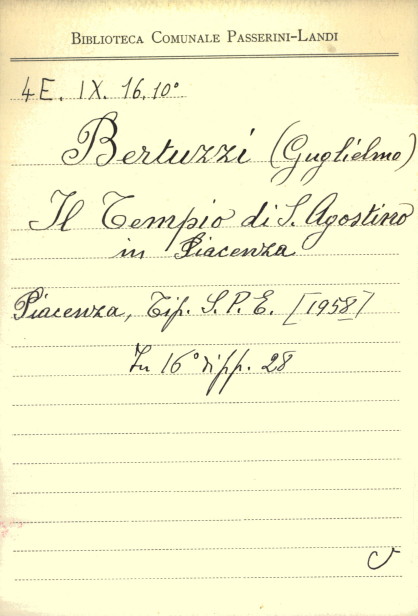 BIBLIOTECA COMUNALE PASSERINI-LANDI
4E. IX. 16.10°
Bertuzzi (Guglielmo)
Il Tempio di S. Agostino
in Piacenza
Piacenza, Tip. S.P.E. [1958]
In 16° di pp. 28